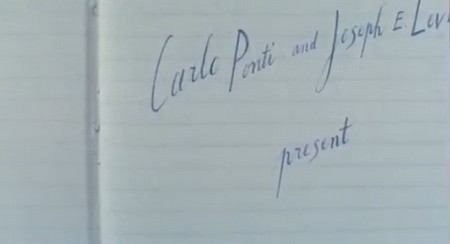 Carlo Ponti and Joseph E. Lev
present